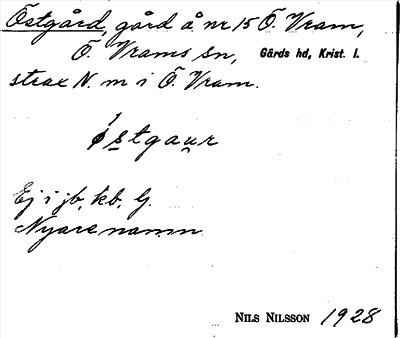 Östgård, gård å nr 15 Ö. Vram,
Ö. Vrams sn, Gärds hd, Krist. l.
strax N. m i Ö. Vram.
ǿstgaur
Ej i jb, kb, G.
Nyare namn.
NILS NILSSON 1928